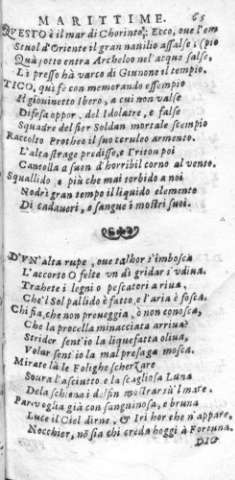 MARITTIME. 65
QVESTO è il mar di Chorinto; Ecco, oue l'em
Stuol d'Oriente il gran nauilio assalse i (pio
Quà, rotto entra Archeloo nel'acque salse,
Lì presso hà varco di Giunone il tempio.
TICO, qui fe con memorando essempio
Il giouinetto Ibero, a cui non valse
Difesa oppor, del Idolatre, e false
Squadre del fier Soldan mortale scempio
Raccolto Protheo il suo ceruleo armento.
L'alta strage predisse, e Triton poi
Cantolla a suon d'horribil corno al vento.
Squallido e più che mai torbido a noi
Nodrì gran tempo il liquido elemento
Di cadaueri, e sangue i mostri suoi.
D'VN'alta rupe, oue talhor s'imbosca
L'accorto O felte vn dì gridar s'vdiua.
Trahete i legni o pescatori a riua,
Che'l Sol pallido è fatto, e l'aria è fosca.
Chi fia, che non preueggia, ò non conosca,
Che la procella minacciata arriua?
Strider sent'io la liquefatta oliua,
Volar sent'io la mal presaga mosca.
Mirate là le Folighe scherzare
Soura l'asciutto e la scagliosa Luna
Dela schiena i delfin mostrar sù'l mare.
Par veglia già con sanguinosa, e bruna
Luce il Ciel dirne, & Iri hor che n'appare,
Nocchier, nõ sia chi creda hoggi à Fortuna.
DIG